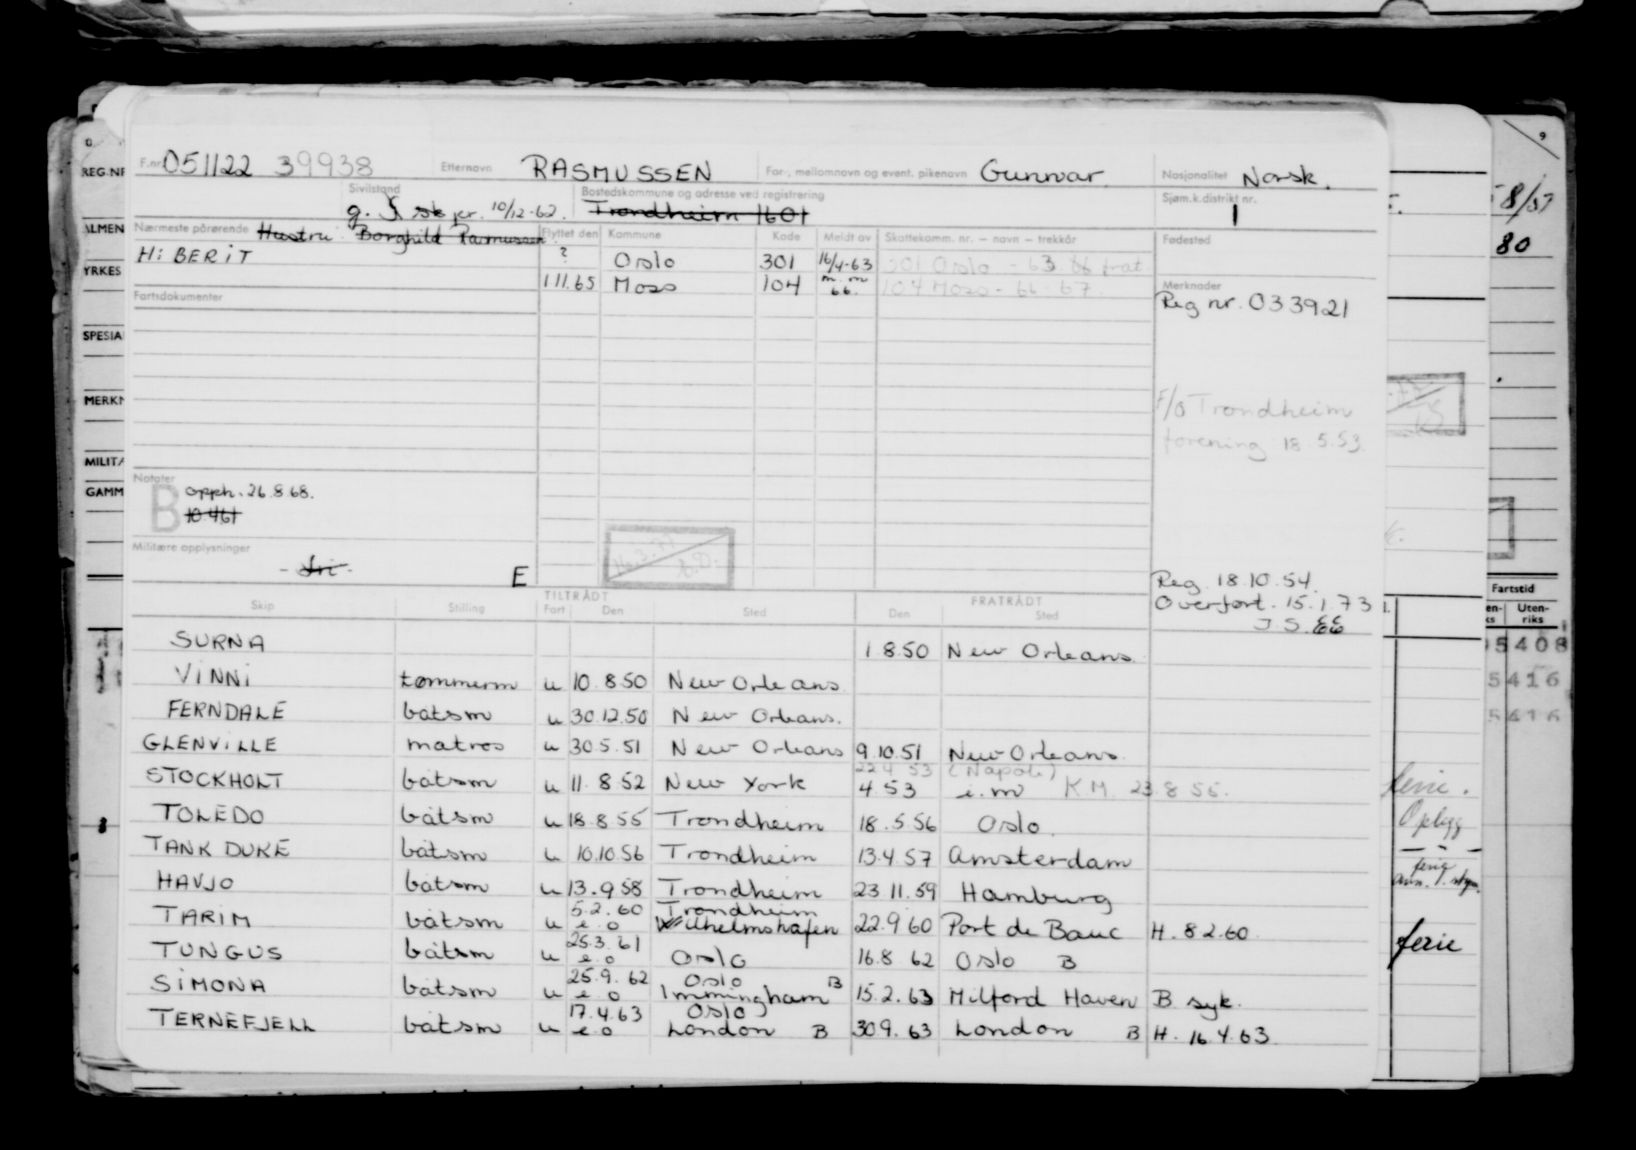 F.nr. 051122 39938 Etternavn RASMUSSEN For-, mellomnavn og event. pikenavn Gunnvar. Nasjonalitet Norsk.
Sivilstand Bostedskommune og adresse ved registrering Sjøm.k.distrikt nr.
g. 10/12-62. Trondheim 1601 1
Nærmeste pårørende Hustru: Borghild Rasmussen Flyttet den Kommune Kode Meldt av Skattekomm. nr. – navn – trekkår Fødested
H: BERIT ? Oslo 301 16/4-63 301 Oslo - 63
1.11.65 Moss 104 m.m 66. 104 Moss - 66-67. Merknader
Fartsdokumenter Reg nr. 033921
Trondheim
forening 18.5.53.
Notater
B opph. 26.8.68.
10.4.61
Militære opplysninger
E
16.3.77
Reg. 18.10.54.
Overført. 15.1.73
J.S.
TILTRÅDT FRATRÅDT
Skip Stilling Fart Den Sted Den Sted
SURNA 1.8.50 New Orleans.
VINNI tømmerm u 10.8.50 New Orleans.
FERNDALE båtsm u 30.12.50 New Orleans.
GLENVILLE matros u 30.5.51 New Orleans 9.10.51 New Orleans.
22.4.53 (Napoli)
STOCKHOLT båtsm u 11.8.52 New York 4.53 i.m K.M. 23.8.55.
TOLEDO båtsm u 18.8.55 Trondheim 18.5.56 Oslo.
TANK DUKE båtsm u 10.10.56 Trondheim 13.4.57 Amsterdam
HAVJO båtsm u 13.9.58 Trondheim 23.11.59 Hamburg
5.2.60 Trondheim
TARIM båtsm u e.o Wilhelmshafen 22.9.60 Port de Bouc H. 8.2.60.
25.3.61
TUNGUS båtsm u e.o Oslo 16.8.62 Oslo B
25.9.62 Oslo B
SIMONA båtsm u e.o Immingham 15.2.63 Milford Haven B. syk.
17.4.63 Oslo
TERNEFJELL båtsm u e.o London B 30.9.63 London B H. 16.4.63.
REG.NR
ALMEN
YRKES
SPESIA
MERKN
MILITÆ
GAMM
9
8/57
80
Fartstid
Uten-
riks
5408
5416
5416
ferie.
Oplegg
ferie